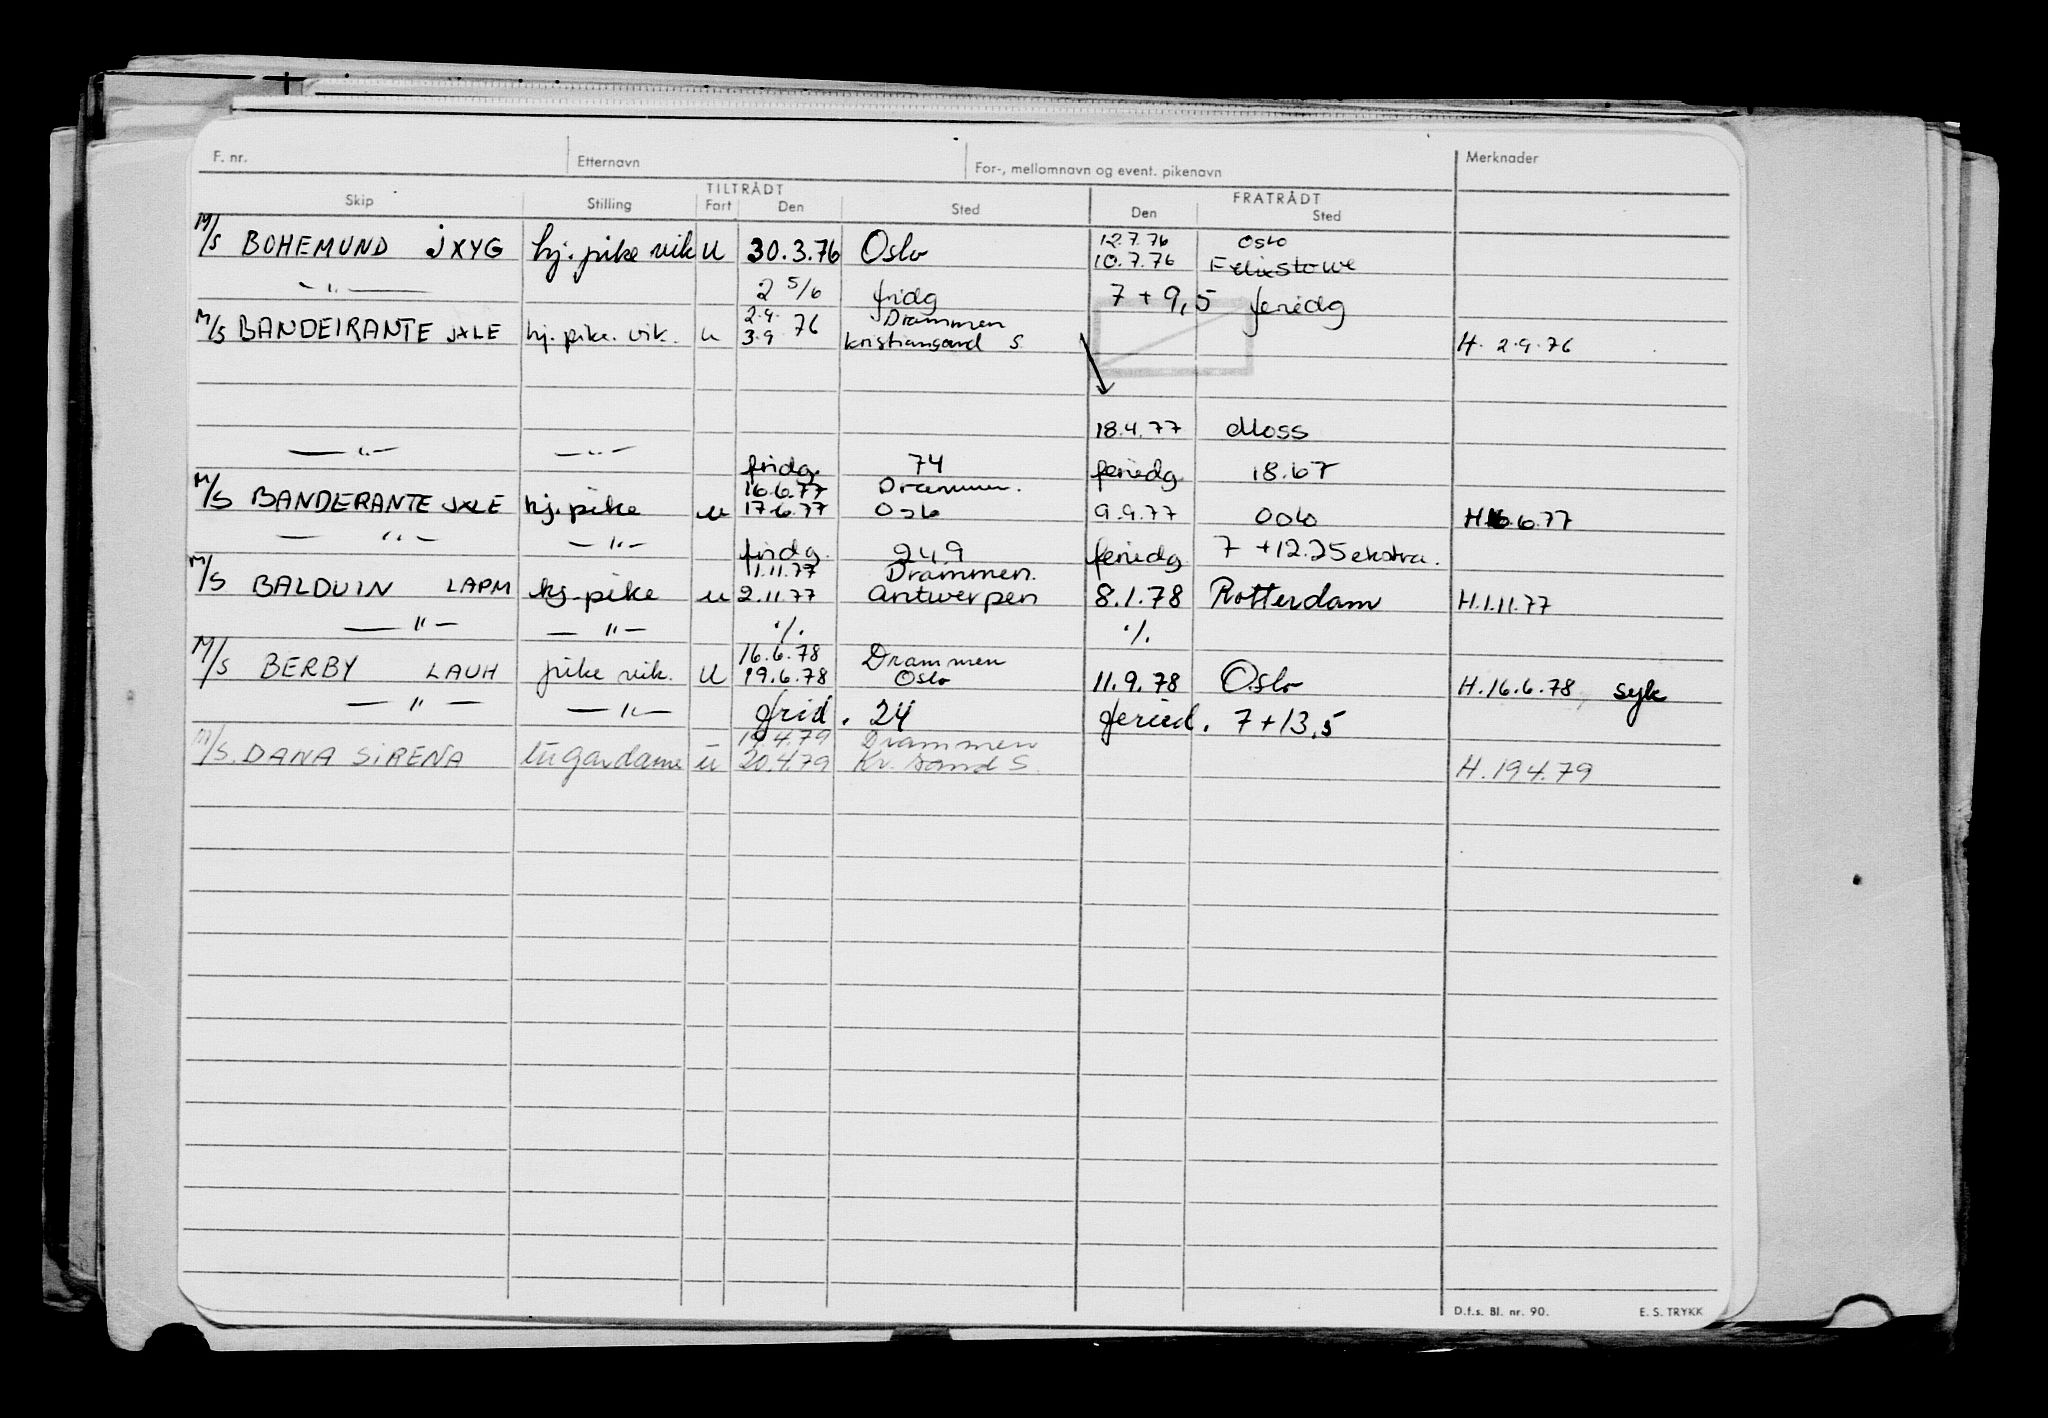 F. nr. Etternavn For-, mellomnavn og event. pikenavn Merknader
TILTRÅDT FRATRÅDT
Skip Stilling Fart Den Sted Den Sted
12.7.76 Oslo
M/S BOHEMUND JXYG hj. pike vik U 30.3.76 Oslo 10.7.76 Felixstowe
— " — 2 5/6 fridg 7 + 9,5 feriedg
2.9. Drammen
M/S BANDEIRANTE JXLE hj. pike. vik. u 3.9 76 Kristiansand S H. 2.9.76
18.4.77 Moss
— " — — " — fridg. 74 feriedg 18.67
16.6.77 Drammen.
M/S BANDERANTE JXLE hj. pike u 17.6.77 Oslo 9.9.77 Oslo H.16.6.77
— " — — " — fridg. 24.9 feriedg 7 + 12.25 ekstra.
1.11.77 Drammen.
M/S BALDUIN LAPM hj. pike u 2.11.77 Antwerpen 8.1.78 Rotterdam H.1.11.77
— " — — " — ./. ./.
16.6.78 Drammen
M/S BERBY LAUH pike vik. U 19.6.78 Oslo 11.9.78 Oslo H.16.6.78, syk
— " — — " — frid. 24 feried. 7+13,5
19.4.79 Drammen
M/S. DANA SIRENA lugardame u 20.4.79 Kr. sand S. H.19.4.79
D.f.s. Bl. nr. 90. E. S. TRYKK